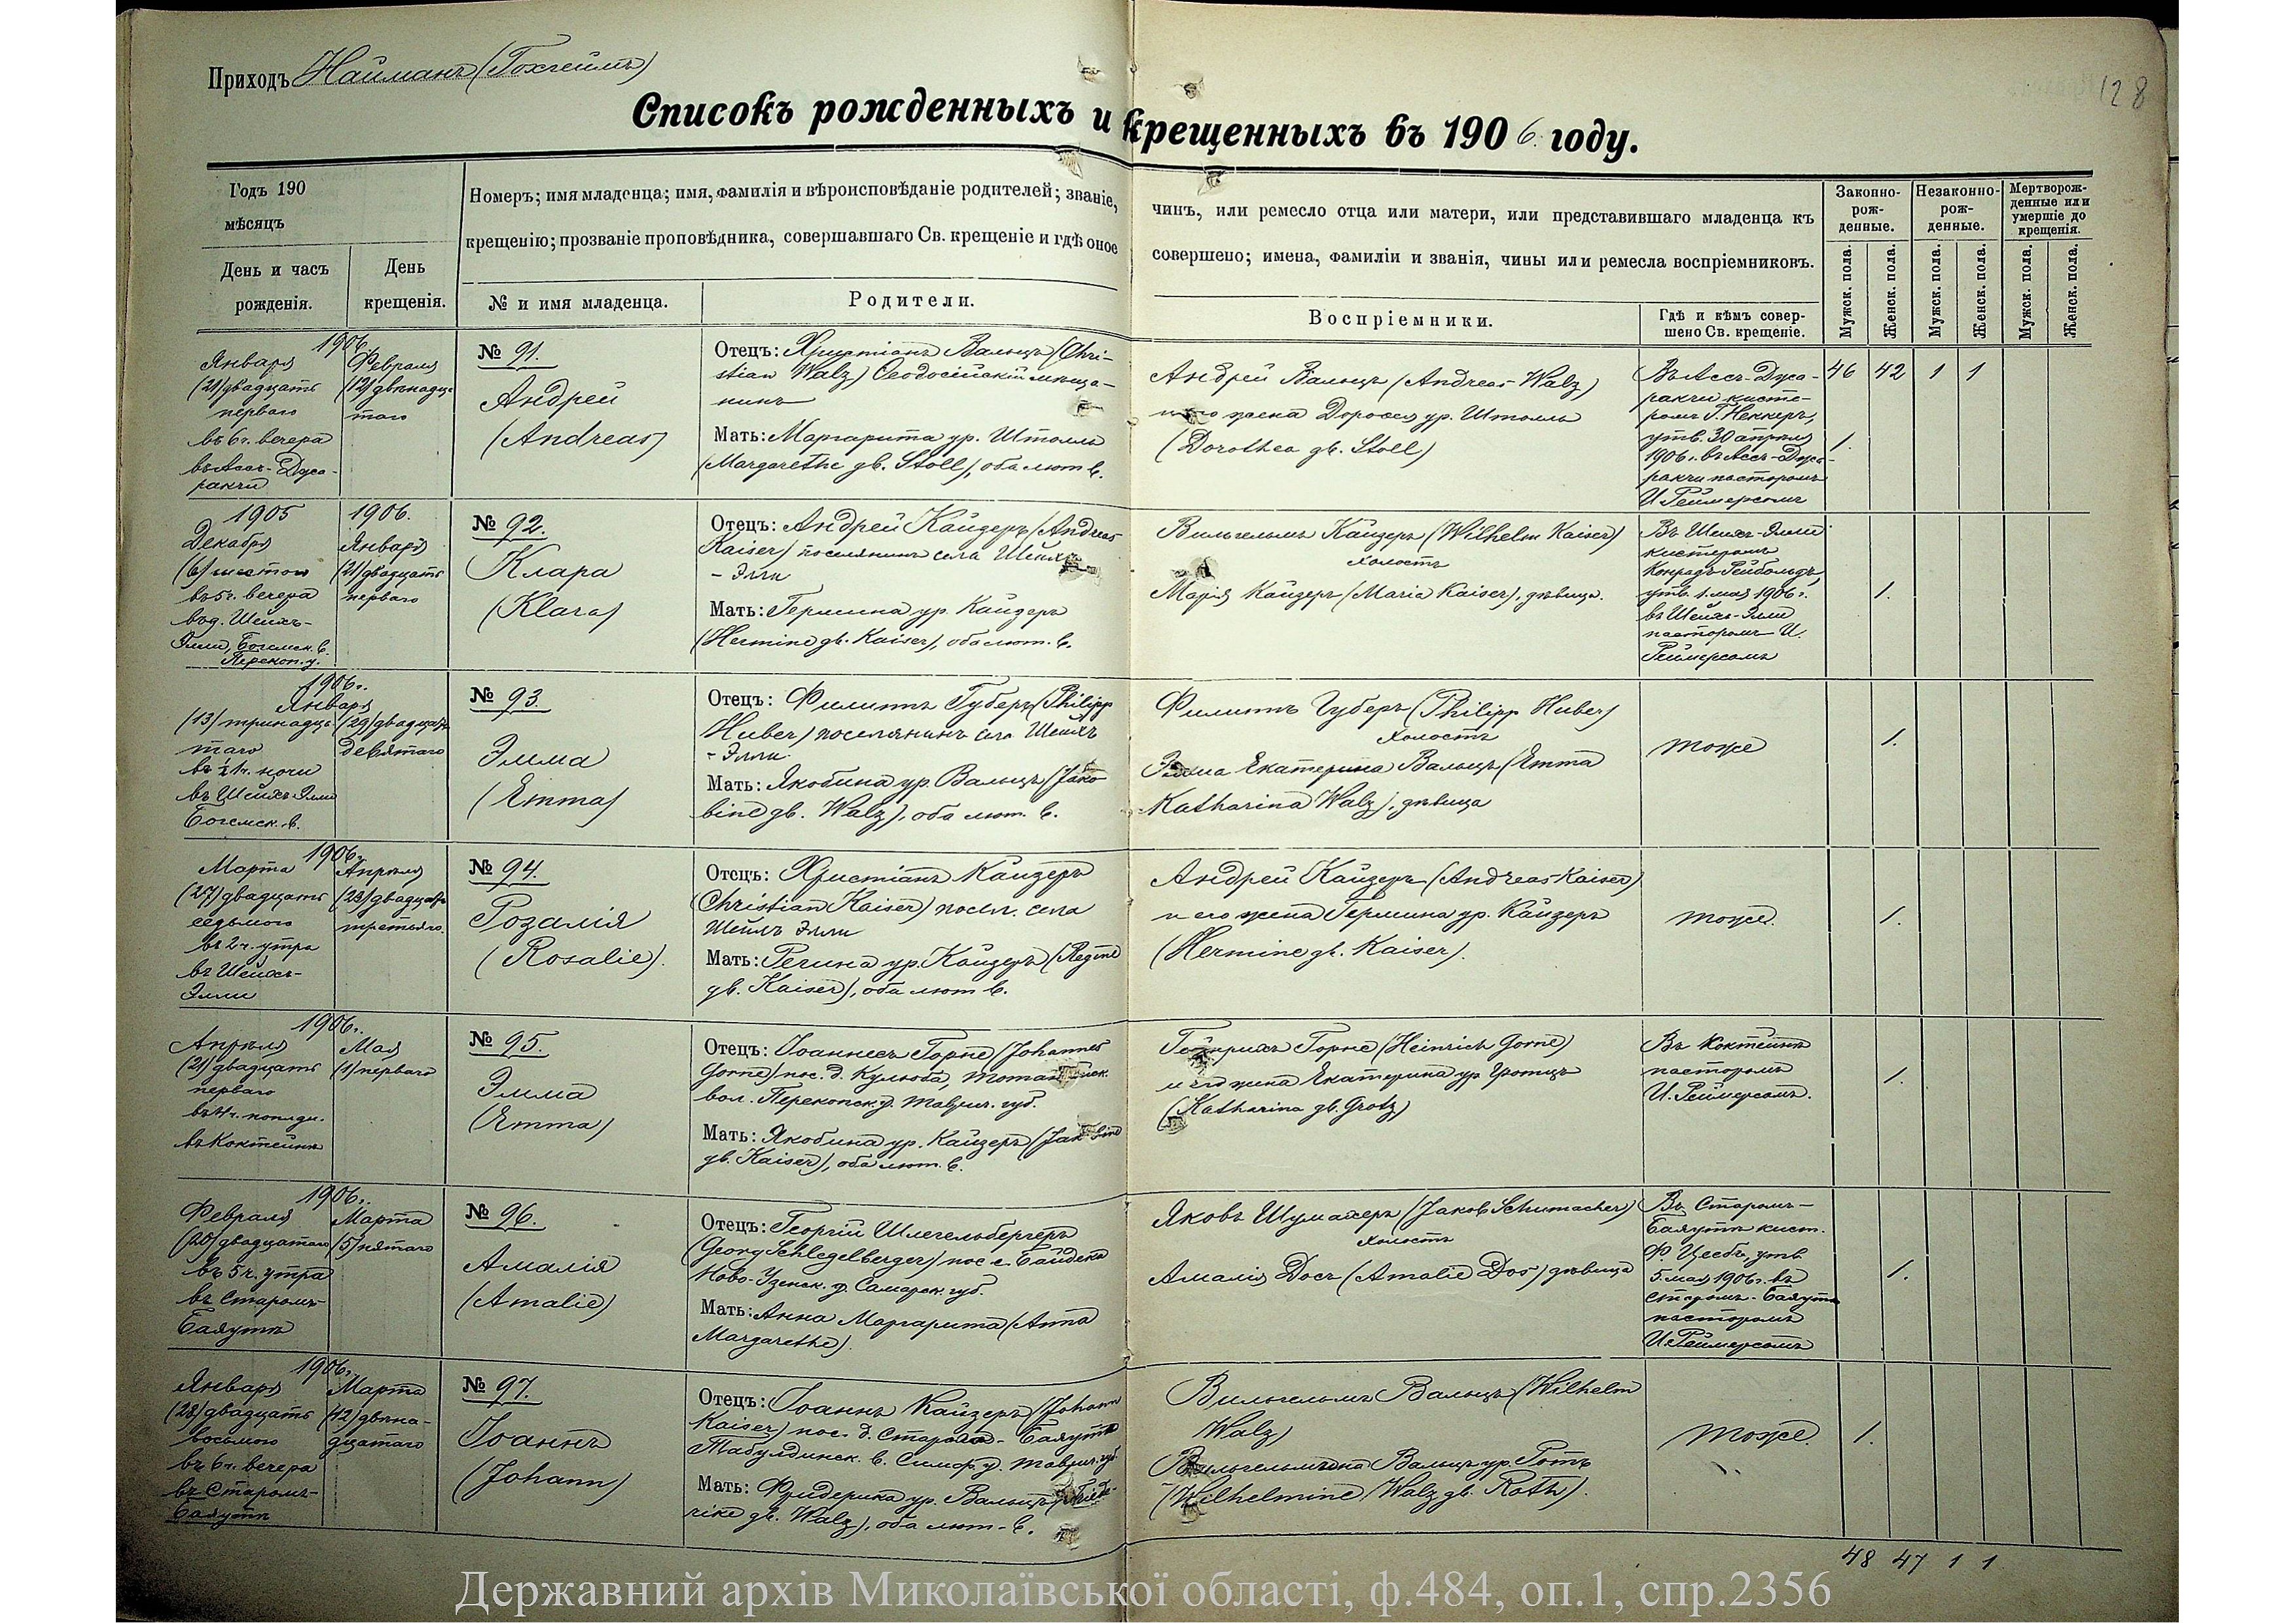 Приходъ Найманъ (Гохгеймъ)
128
Списокъ рожденныхъ и крещенныхъ въ 1906 году.
Годъ 190
мѣсяцъ
День и часъ рожденія.
День крещенія.
Номеръ; имя младенца; имя, фамилія и вѣроисповѣданіе родителей; званіе,
крещенію; прозваніе проповѣдника, совершавшаго Св. крещеніе и гдѣ оное
№ и имя младенца.
Родители.
чинъ, или ремесло отца или матери, или представившаго младенца къ
совершено; имена, фамиліи и званія, чины или ремесла воспріемниковъ.
Воспріемники.
Гдѣ и кѣмъ совер-
шено Св. крещеніе.
Законно-
рож-
денные.
Незаконно-
рож-
денные.
Мертворож-
денные или
умершіе до
крещенія.
Мужск. пола.
Женск. пола.
Мужск. пола.
Женск. пола.
Мужск. пола.
Женск. пола.
1906
Января
(21) двадцать
перваго
въ 6 ч. вечера
въ Ассъ-Джа-
ракчи
Февраля
(12) двѣнадца
таго
№ 91.
Андрей
(Andreas)
Отецъ: Христіанъ Вальцъ (Chri-
stian Walz) Ѳеодосійскій мѣща-
нинъ
Мать: Маргарита ур. Штолль
(Margarethe gb. Stoll), оба лют. в.
Андрей Вальцъ (Andreas Walz)
и его жена Доротея ур. Штолль
(Dorothea gb. Stoll)
Въ Ассъ-Джа-
ракчи кисте-
ромъ Г. Неккеръ,
утв. 30 апрѣля
1906 г. въ Ассъ-Джа-
ракчи пасторомъ
И. Реймерсомъ
46 42 1 1
1.
1905
Декабря
(6) шестого
въ 5 ч. вечера
въ д. Шейхъ-
Эли, Богемск. в.
Перекоп. у.
1906.
Января
(21) двадцать
перваго
№ 92.
Клара
(Klara)
Отецъ: Андрей Кайзеръ (Andreas
Kaiser) поселянинъ села Шейхъ
- Эли
Мать: Гермина ур. Кайзеръ
(Hermine gb. Kaiser), оба лют. в.
Вильгельмъ Кайзеръ (Wilhelm Kaiser)
холостъ
Марія Кайзеръ (Maria Kaiser), дѣвица.
Въ Шейхъ-Эли
кистеромъ
Конрадъ Рейбольдъ,
утв. 1. мая 1906 г.
въ Шейхъ-Эли
пасторомъ И.
Реймерсомъ
1.
1906 г.
Января
(13) тринадца
таго
въ ½ 1 ч. ночи
въ Шейхъ-Эли
Богемск. в.
(29) двадцать
девятаго
№ 93.
Эмма
(Emma)
Отецъ: Филиппъ Губеръ (Philipp
Huber) поселянинъ села Шейхъ
- Эли
Мать: Якобина ур. Вальцъ (Jako
bine gb. Walz), оба лют. в.
Филиппъ Губеръ (Philipp Huber)
холостъ
Эмма Екатерина Вальцъ (Emma
Katharina Walz), дѣвица
тоже
1.
1906
Марта
(27) двадцать
седьмого
въ 2 ч. утра
въ Шейхъ-
Эли
Апрѣля
(23) двадцать
третьяго.
№ 94.
Розалія
(Rosalie).
Отецъ: Христіанъ Кайзеръ
(Christian Kaiser) посел. села
Шейхъ Эли
Мать: Регина ур. Кайзеръ (Regine
gb. Kaiser), оба лют в.
Андрей Кайзеръ (Andreas Kaiser)
и его жена Гермина ур. Кайзеръ
(Hermine gb. Kaiser).
тоже.
1.
1906 г.
Апрѣля
(21) двадцать
перваго
въ 4 ч. полудн.
въ Коктейнѣ
Мая
(1) перваго
№ 95.
Эмма
(Emma)
Отецъ: Іоаннесъ Горне (Johannes
Gorne) пос. д. Кулюба,
вол. Перекопск. у. Таврич. губ.
Мать: Якобина ур. Кайзеръ (Jakobine
gb. Kaiser), оба лют. в.
Гейнрихъ Горне (Heinrich Gorne)
и его жена Екатерина ур. Гротцъ
(Katharina gb. Grotz)
Въ Коктейнѣ
пасторомъ
И. Реймерсомъ.
1.
1906 г.
Февраля
(20) двадцатаго
въ 5 ч. утра
въ Старомъ-
Баяутѣ
Марта
(5) пятаго
№ 96.
Амалія
(Amalie)
Отецъ: Георгій Шлегельбергеръ
(Georg Schlegelberger) пос с. Байдекъ
Ново-Узенск. у. Самарск. губ.
Мать: Анна Маргарита (Anna
Margarethe).
Яковъ Шумахеръ (Jakob Schumacher)
холостъ
Амалія Досъ (Amalie Dos) дѣвица
Въ Старомъ-
Баяутѣ кист.
Ф. Цеебъ, утв.
5. мая 1906 г. въ
Старомъ-Баяутѣ
пасторомъ
И. Реймерсомъ
1.
1906 г.
Января
(28) двадцать
восьмого
въ 6 ч. вечера
въ Старомъ-
Баяутѣ
Марта
(12) двѣна-
дцатаго
№ 97.
Іоаннъ
(Johann)
Отецъ: Іоаннъ Кайзеръ (Johann
Kaiser) пос. д. Старый-Баяутъ
Табулдинск. в. Симф. у. Таврич. губ.
Мать: Фридерика ур. Вальцъ (Friede-
rike gb. Walz), оба лют. в.
Вильгельмъ Вальцъ (Wilhelm
Walz)
Вильгельмина Вальцъ ур. Ротъ
(Wilhelmine Walz gb. Roth).
тоже.
1.
48 47 1 1
Державний архів Миколаївської області, ф.484, оп.1, спр.2356